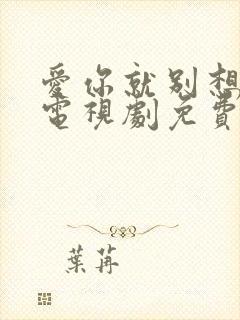 愛你就別想
電視劇免費
葉苒